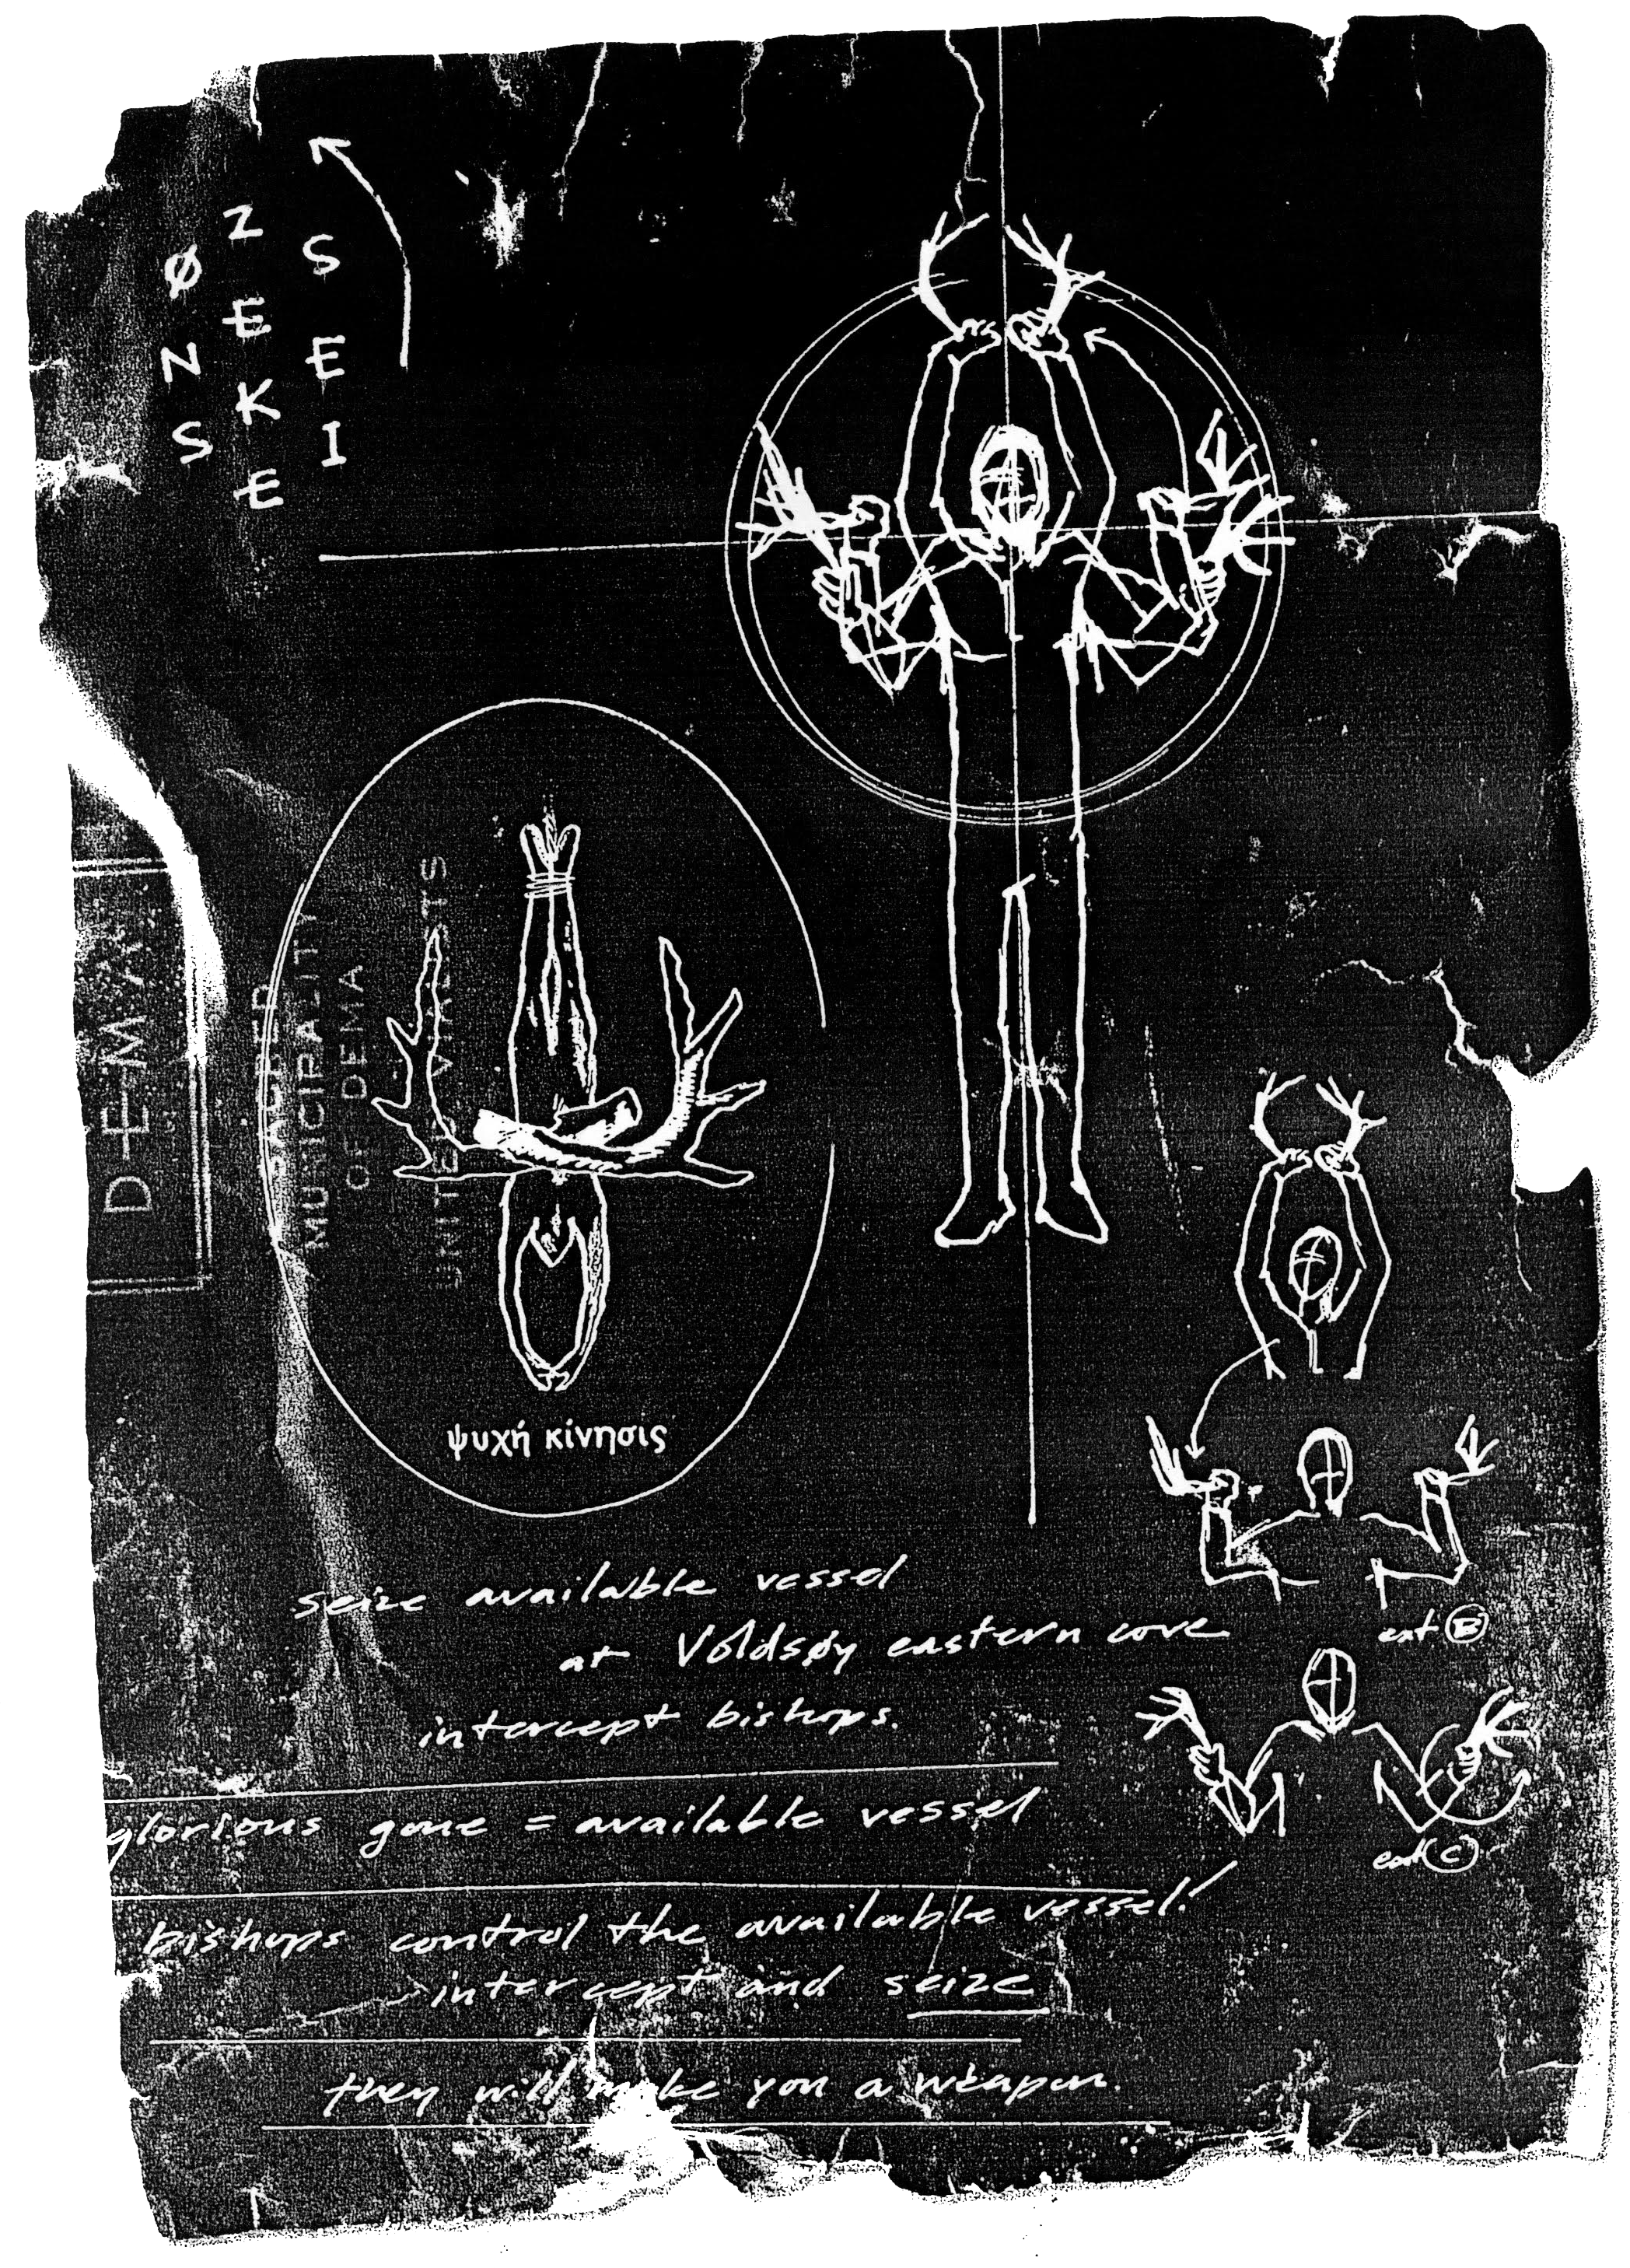 ØNS
ZEKE
SEI
SACRED
MUNICIPALITY
OF DEMA
ψυχή κίνησις
seize available vessel
at Voldsøy eastern cove
intercept bishops.
glorious gone = available vessel
bishops control the available vessel!
intercept and seize
they will make you a weapon.
ext B
ext C